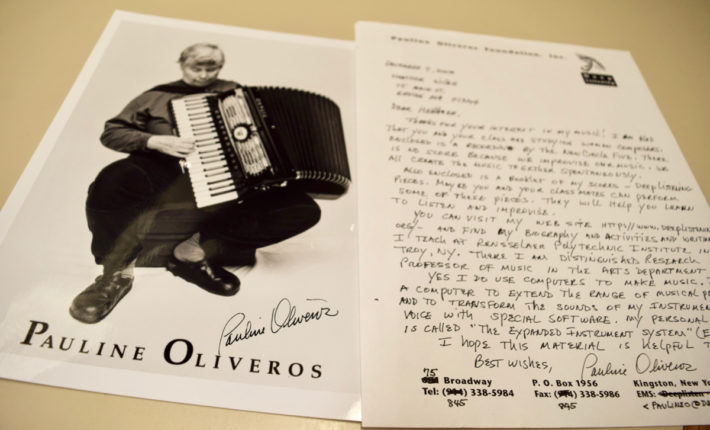 PAULINE OLIVEROS
Pauline Oliveros
Pauline Oliveros Foundation, Inc.
DECEMBER 7,
DEAR
THANKS FOR YOUR INTEREST IN MY MUSIC! I AM
THAT YOU AND YOUR CLASS ARE STUDYING WOMEN COMPOSERS.
ENCLOSED IS A RECORDING BY THE NEW CIRCLE FIVE. THERE
IS NO SCORE BECAUSE WE IMPROVISE OUR MUSIC. WE
ALL CREATE THE MUSIC TOGETHER SPONTANEOUSLY.
ALSO ENCLOSED IS A BOOKLET OF MY SCORES - DEEP LISTENING
PIECES. MAYBE YOU AND YOUR CLASSMATES CAN PERFORM
SOME OF THESE PIECES. THEY WILL HELP YOU LEARN
TO LISTEN AND IMPROVISE.
YOU CAN VISIT MY WEB SITE HTTP://WWW.DEEPLISTENIN
ORG/- AND FIND MY BIOGRAPHY AND ACTIVITIES AND WRITIN
I TEACH AT RENSSELAER POLYTECHNIC INSTITUTE IN
TROY, NY. THERE I AM DISTINGUISHED RESEARCH
PROFESSOR OF MUSIC IN THE ARTS DEPARTMENT
YES I DO USE COMPUTERS TO MAKE MUSIC. I
A COMPUTER TO EXTEND THE RANGE OF MUSICAL P
AND TO TRANSFORM THE SOUNDS OF MY INSTRUMEN
VOICE WITH SPECIAL SOFTWARE. MY PERSONAL
IS CALLED "THE EXPANDED INSTRUMENT SYSTEM" (E
I HOPE THIS MATERIAL IS HELPFUL T
BEST WISHES, Pauline Oliveros
75
Broadway P. O. Box 1956 Kingston, New Yo
Tel: (914) 338-5984 Fax: (914) 338-5986 EMS: Deeplisten
845 845 <PAULINEO@DE